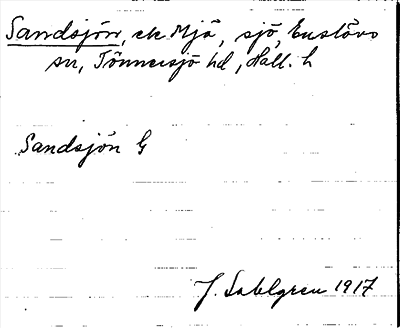 Sandsjön, ek Mjä, sjö, Enslövs
sn, Tönnersjö hd, Hall. l.
Sandsjön G
J. Sahlgren 1917